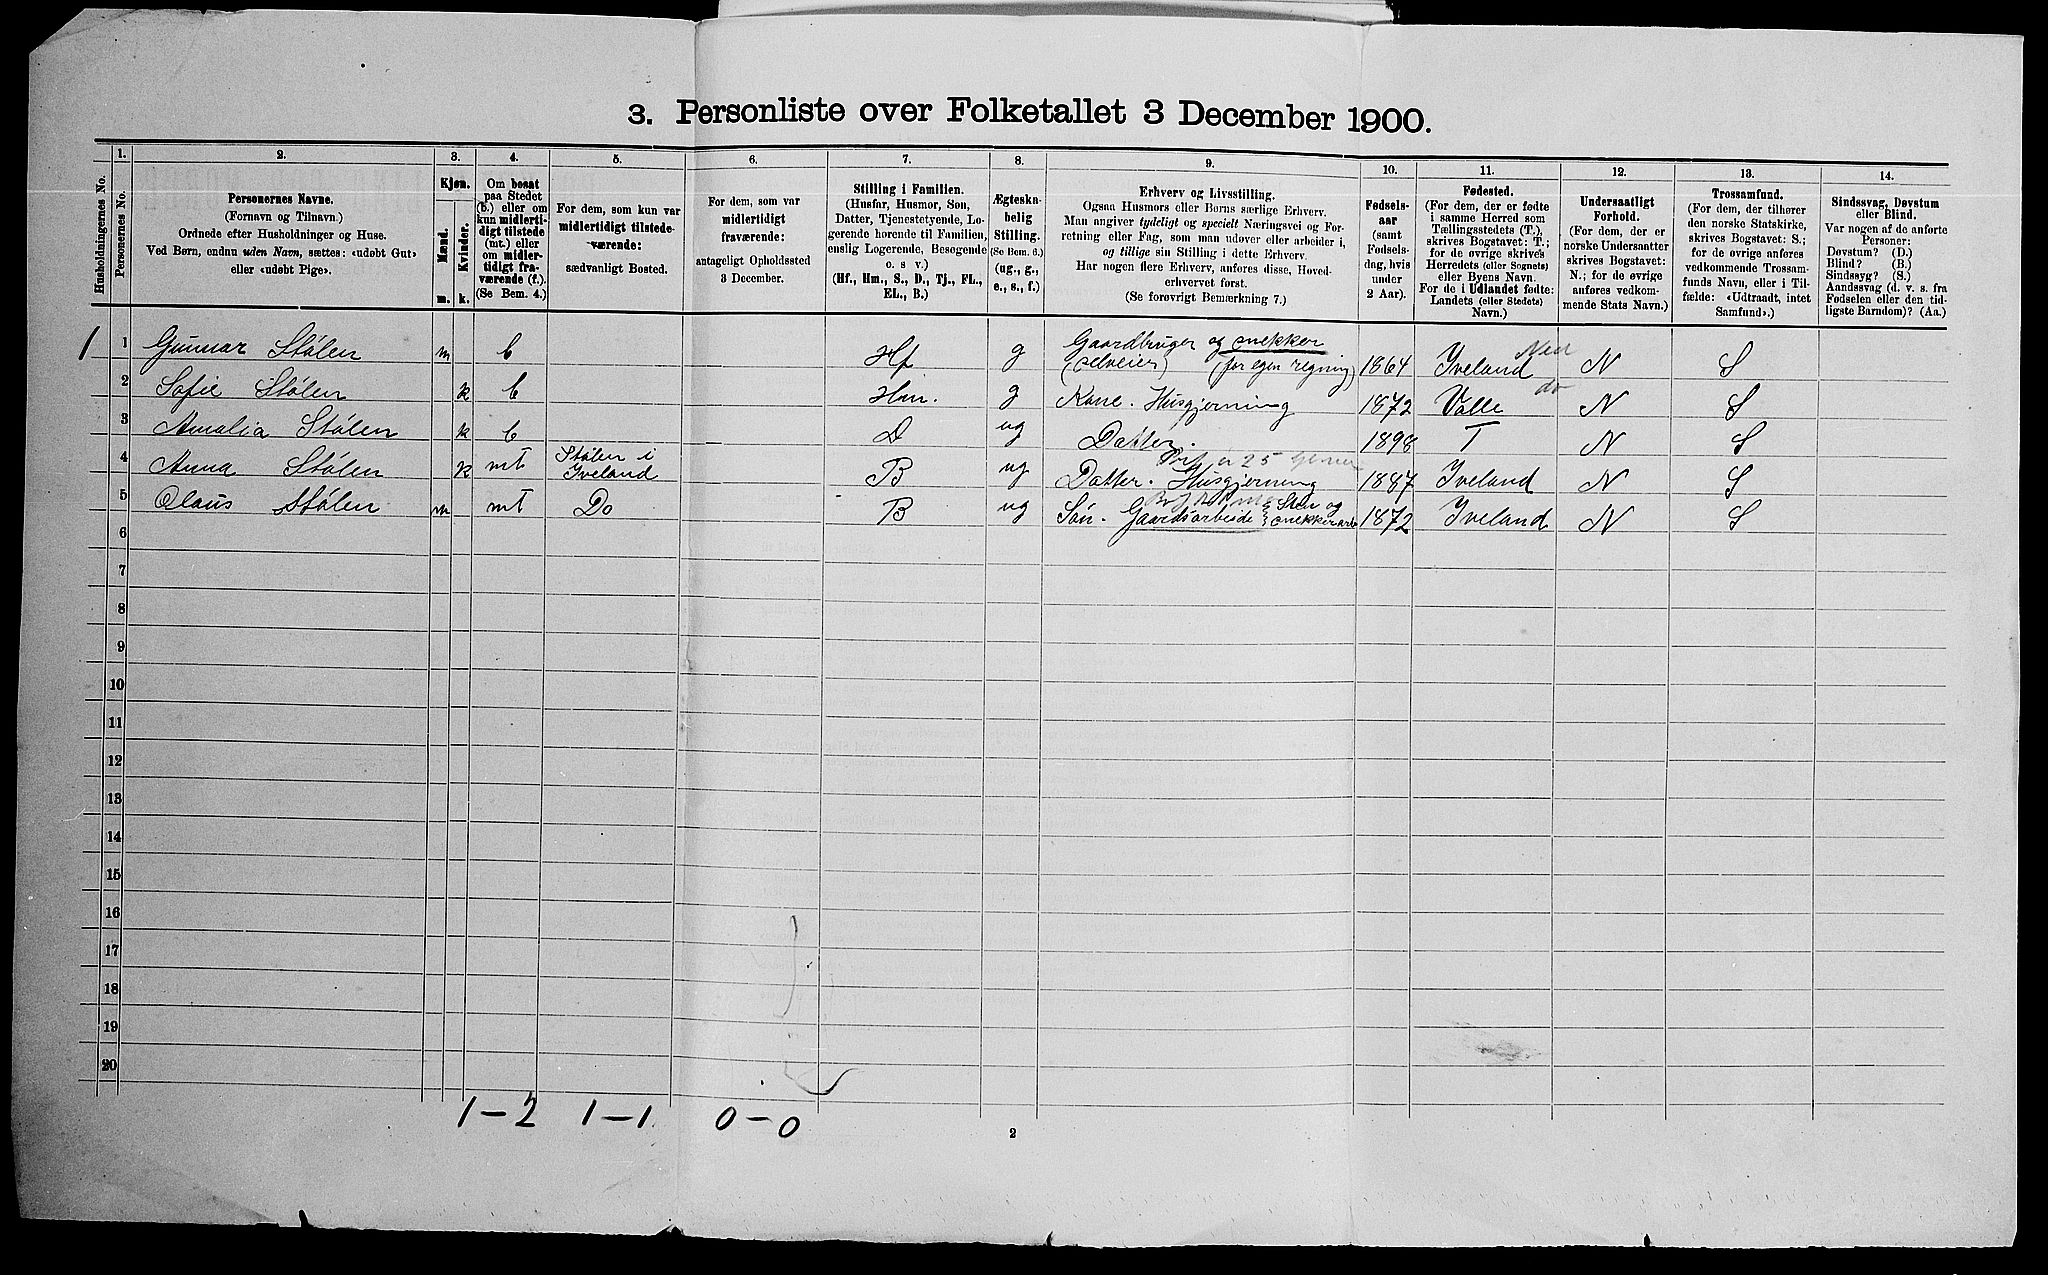 3. Personliste over Folketallet 3 December 1900.
1. 2. 3. 4. 5. 6. 7. 8. 9. 10. 11. 12. 13. 14.
Husholdningernes No.
Personernes No.
Personernes Navne.
(Fornavn og Tilnavn.)
Ordnede efter Husholdninger og Huse.
Ved Børn, endnu uden Navn, sættes: «udøbt Gut»
eller «udøbt Pige».
Kjøn.
Mænd.
Kvinder.
m. k.
Om bosat
paa Stedet
(b.) eller om
kun midlerti-
digt tilstede
(mt.) eller
om midler-
tidigt fra-
værende (f.).
(Se Bem. 4.)
For dem, som kun var
midlertidigt tilstede-
værende:
sædvanligt Bosted.
For dem, som var
midlertidigt
fraværende:
antageligt Opholdssted
3 December.
Stilling i Familien.
(Husfar, Husmor, Søn,
Datter, Tjenestetyende, Lo-
gerende hørende til Familien,
enslig Logerende, Besøgende
o. s v.)
(Hf., Hm., S., D., Tj., FL.,
EL., B.)
Ægteska-
belig
Stilling.
(Se Bem. 6.)
(ug., g.,
e., s., f.)
Erhverv og Livsstilling.
Ogsaa Husmors eller Børns særlige Erhverv.
Man angiver tydeligt og specielt Næringsvei og For-
retning eller Fag, som man udøver eller arbeider i,
og tillige sin Stilling i dette Erhverv.
Har nogen flere Erhverv, anføres disse, Hoved-
erhvervet først.
(Se forøvrigt Bemærkning 7.)
Fødsels-
aar
(samt
Fødsels-
dag, hvis
under
2 Aar).
Fødested.
(For dem, der er fødte
i samme Herred som
Tællingsstedets (T.),
skrives Bogstavet: T.;
for de øvrige skrives
Herredets (eller Sognets)
eller Byens Navn.
For de i Udlandet fødte:
Landets (eller Stedets)
Navn.)
Undersaatligt
Forhold.
(For dem, der er
norske Undersaatter
skrives Bogstavet:
N.; for de øvrige
anføres vedkom-
mende Stats Navn.)
Trossamfund.
(For dem, der tilhører
den norske Statskirke,
skrives Bogstavet: S.;
for de øvrige anføres
vedkommende Trossam-
funds Navn, eller i Til-
fælde: «Udtraadt, intet
Samfund».)
Sindssvag, Døvstum
eller Blind.
Var nogen af de anførte
Personer:
Døvstum? (D.)
Blind? (B.)
Sindssyg? (S.)
Aandssvag (d. v. s. fra
Fødselen eller den tid-
ligste Barndom)? (Aa.)
1 1 Gunnar Stølen m b Hf g Gaardbruger og snekker (selveier) (for egen regning) 1864 Iveland N S
Ned
2 Sofie Stølen k b Hm. g Kone. Husgjerning 1872 Valle do N S
3 Amalia Stølen k b D ug Datter. 1898 T N S
4 Anna Stølen k mt Stølen i Iveland B ug Datter. Husgjerning 1887 Iveland N S
5 Olaus Stølen m mt Do B ug Søn. Gaardsarbeide Sten og snekkerarb 1872 Iveland N S
6
7
8
9
10
11
12
13
14
15
16
17
18
19
20
1 – 2 1 – 1 0 – 0
2